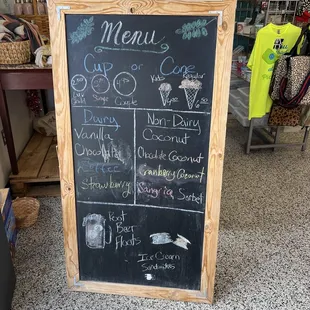 Menu
Cup or Cone
Kids
Single
Couple
Kids
Regular
Dairy
Non-Dairy
Vanilla
Coconut
Chocolate
Chocolate Coconut
Cranberry Coconut
Strawberry
Sangria Sorbet
Root
Beer
Floats
Ice Cream
Sandwiches